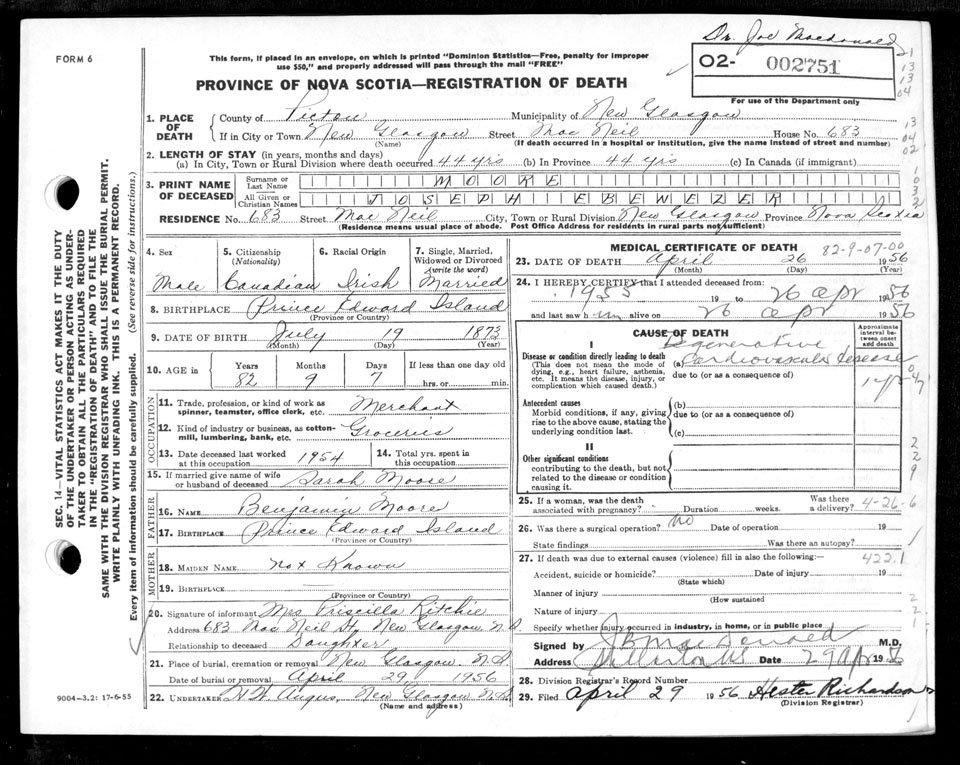 Dr. Joe Macdonald
FORM 6
This form, if placed in an envelope, on which is printed "Dominion Statistics—Free, penalty for improper
use $50," and properly addressed will pass through the mail "FREE"
02- 002751
PROVINCE OF NOVA SCOTIA—REGISTRATION OF DEATH
For use of the Department only
21
13
13
04
13
04
02
SEC. 14—VITAL STATISTICS ACT MAKES IT THE DUTY
OF THE UNDERTAKER OR PERSON ACTING AS UNDER-
TAKER TO OBTAIN ALL THE PARTICULARS REQUIRED
IN THE "REGISTRATION OF DEATH" AND TO FILE THE
SAME WITH THE DIVISION REGISTRAR WHO SHALL ISSUE THE BURIAL PERMIT.
WRITE PLAINLY WITH UNFADING INK. THIS IS A PERMANENT RECORD.
Every item of information should be carefully supplied. (See reverse side for instructions.)
1. PLACE OF DEATH
County of Pictou Municipality of New Glasgow
If in City or Town New Glasgow Street Mac Neil House No. 683
(Name) (If death occurred in a hospital or institution, give the name instead of street and number)
2. LENGTH OF STAY (in years, months and days)
(a) In City, Town or Rural Division where death occurred 44 yrs (b) In Province 44 yrs (c) In Canada (if immigrant)
3. PRINT NAME OF DECEASED
Surname or Last Name MOORE
All Given or Christian Names JOSEPH EBENEZER
RESIDENCE No. 683 Street Mac Neil City, Town or Rural Division New Glasgow Province Nova Scotia
(Residence means usual place of abode. Post Office Address for residents in rural parts not sufficient)
4. Sex 5. Citizenship (Nationality) 6. Racial Origin 7. Single, Married, Widowed or Divorced (write the word)
Male Canadian Irish Married
8. BIRTHPLACE Prince Edward Island
(Province or Country)
9. DATE OF BIRTH July 19 1873
(Month) (Day) (Year)
10. AGE Years Months Days If less than one day old
82 9 7 hrs. or min.
OCCUPATION
11. Trade, profession, or kind of work as
spinner, teamster, office clerk, etc. Merchant
12. Kind of industry or business, as cotton-
mill, lumbering, bank, etc. Groceries
13. Date deceased last worked
at this occupation 1954
14. Total yrs. spent in
this occupation
15. If married give name of wife
or husband of deceased Sarah Moore
FATHER
16. NAME Benjamin Moore
17. BIRTHPLACE Prince Edward Island
(Province or Country)
MOTHER
18. MAIDEN NAME Not Known
19. BIRTHPLACE —
20. Signature of informant Mrs Priscilla Ritchie
Address 683 Mac Neil St, New Glasgow, N.S.
Relationship to deceased Daughter
21. Place of burial, cremation or removal New Glasgow N.S.
Date of burial or removal April 29 1956
22. UNDERTAKER H.W. Angus, New Glasgow N.S.
(Name and address)
9004-3.2: 17-6-55
MEDICAL CERTIFICATE OF DEATH 82-9-07-00
23. DATE OF DEATH April 26 1956
(Month) (Day) (Year)
24. I HEREBY CERTIFY that I attended deceased from:
1955 19 to 26 Apr 1956
and last saw him alive on 26 Apr 1956
CAUSE OF DEATH
Approximate interval between onset and death
I
Degenerative
Disease or condition directly leading to death (a) Cardiovascular disease
(This does not mean the mode of dying, e.g., heart failure, asthenia, etc. It means the disease, injury, or complication which caused death.)
due to (or as a consequence of)
Antecedent causes (b)
Morbid conditions, if any, giving rise to the above cause, stating the underlying condition last.
due to (or as a consequence of)
(c)
II
Other significant conditions
contributing to the death, but not related to the disease or condition causing it.
25. If a woman, was the death
associated with pregnancy? Duration weeks. Was there a delivery? 4-26-6
26. Was there a surgical operation? No Date of operation 19
State findings Was there an autopsy?
27. If death was due to external causes (violence) fill in also the following:— 422.1
Accident, suicide or homicide? Date of injury 19
(State which)
Manner of injury
(How sustained
Nature of injury
Specify whether injury occurred in industry, in home, or in public place
Signed by J B MacDonald M.D.
Address Stellarton NS Date 29 Apr 1956
28. Division Registrar's Record Number
29. Filed April 29 1956 Hester Richardson
(Division Registrar)